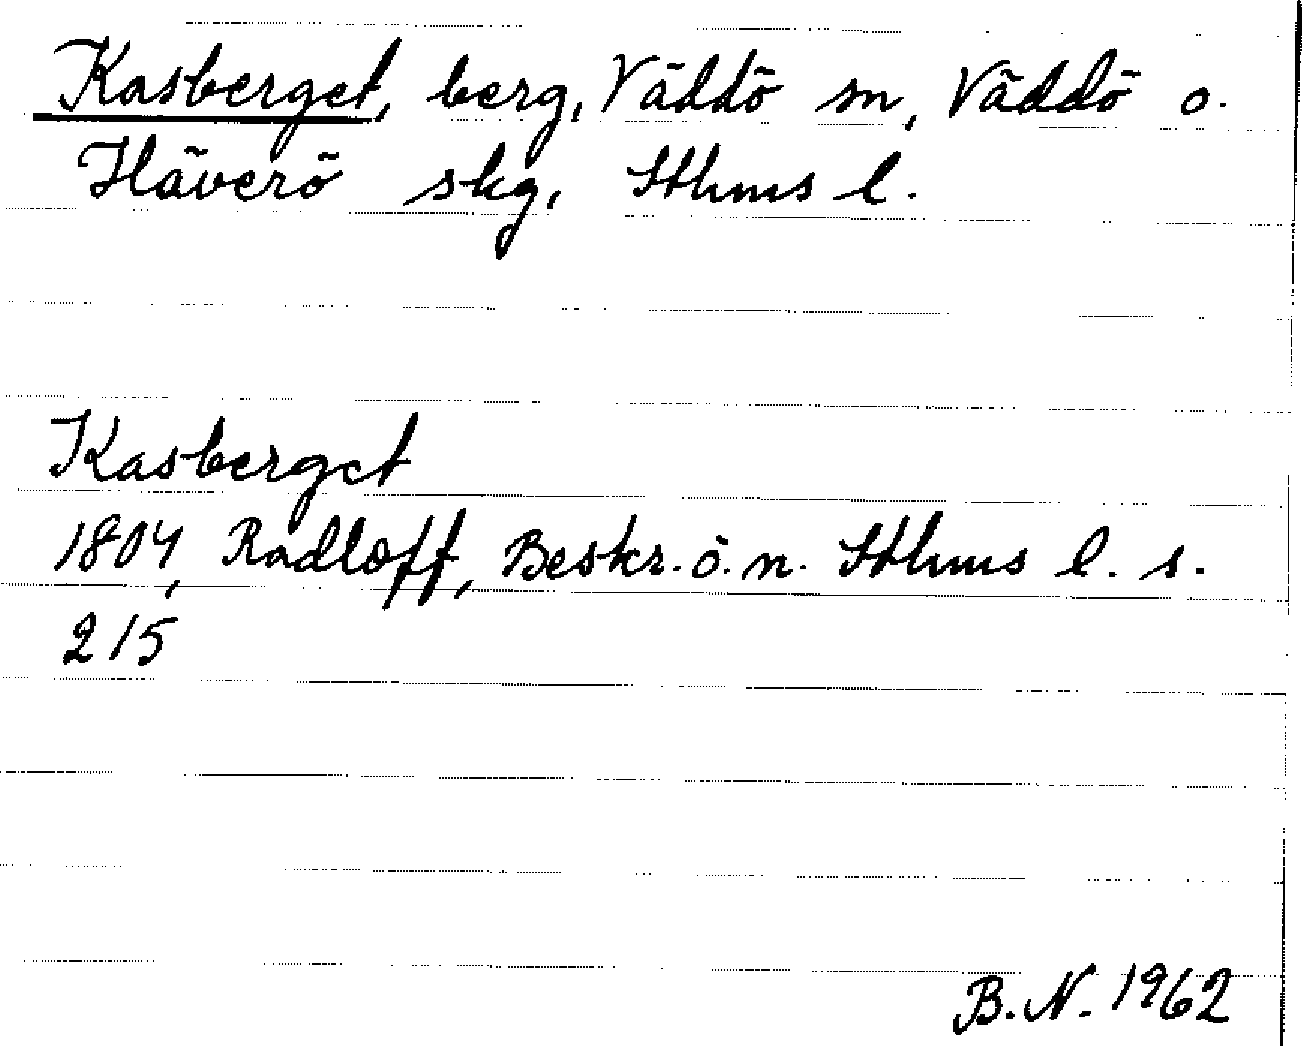 Kasberget, berg, Väddö sn, Väddö o.
Häverö skg, Sthms l.
Kasberget
1804, Radloff, Beskr. ö. n. Sthms l. s.
215
B. N. 1962